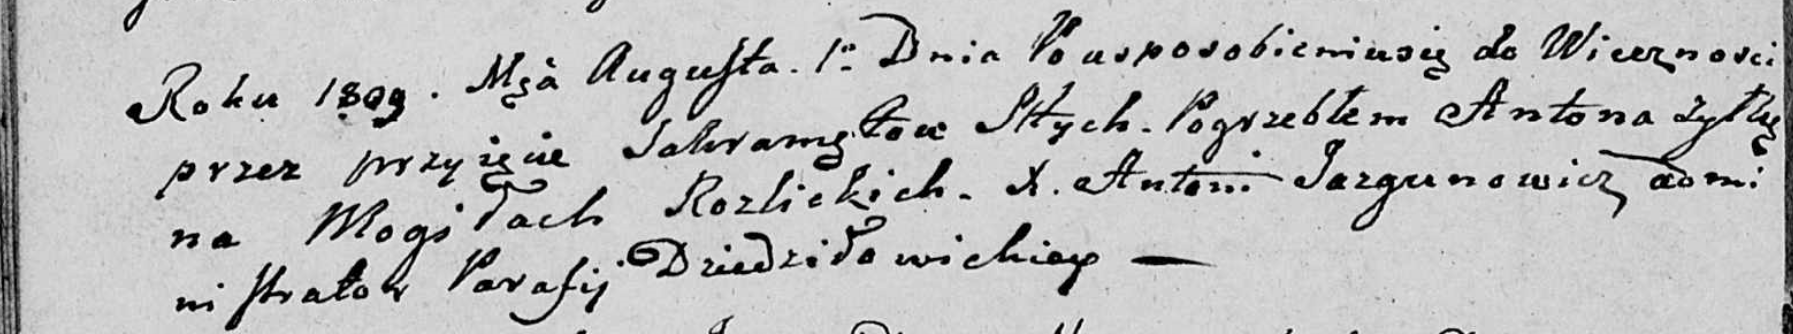 Roku 1809. Mca Augusta. 1o Dnia Po usposobieniusię do Wiecznosci
przez przyięcie Sakramętow Stych. Pogrzebłem Antona Zytkę
na Mogiłach Rozlickich. X. Antoni Jazgunowicz admi
nistrator Parafij Dziedziłowickiey —